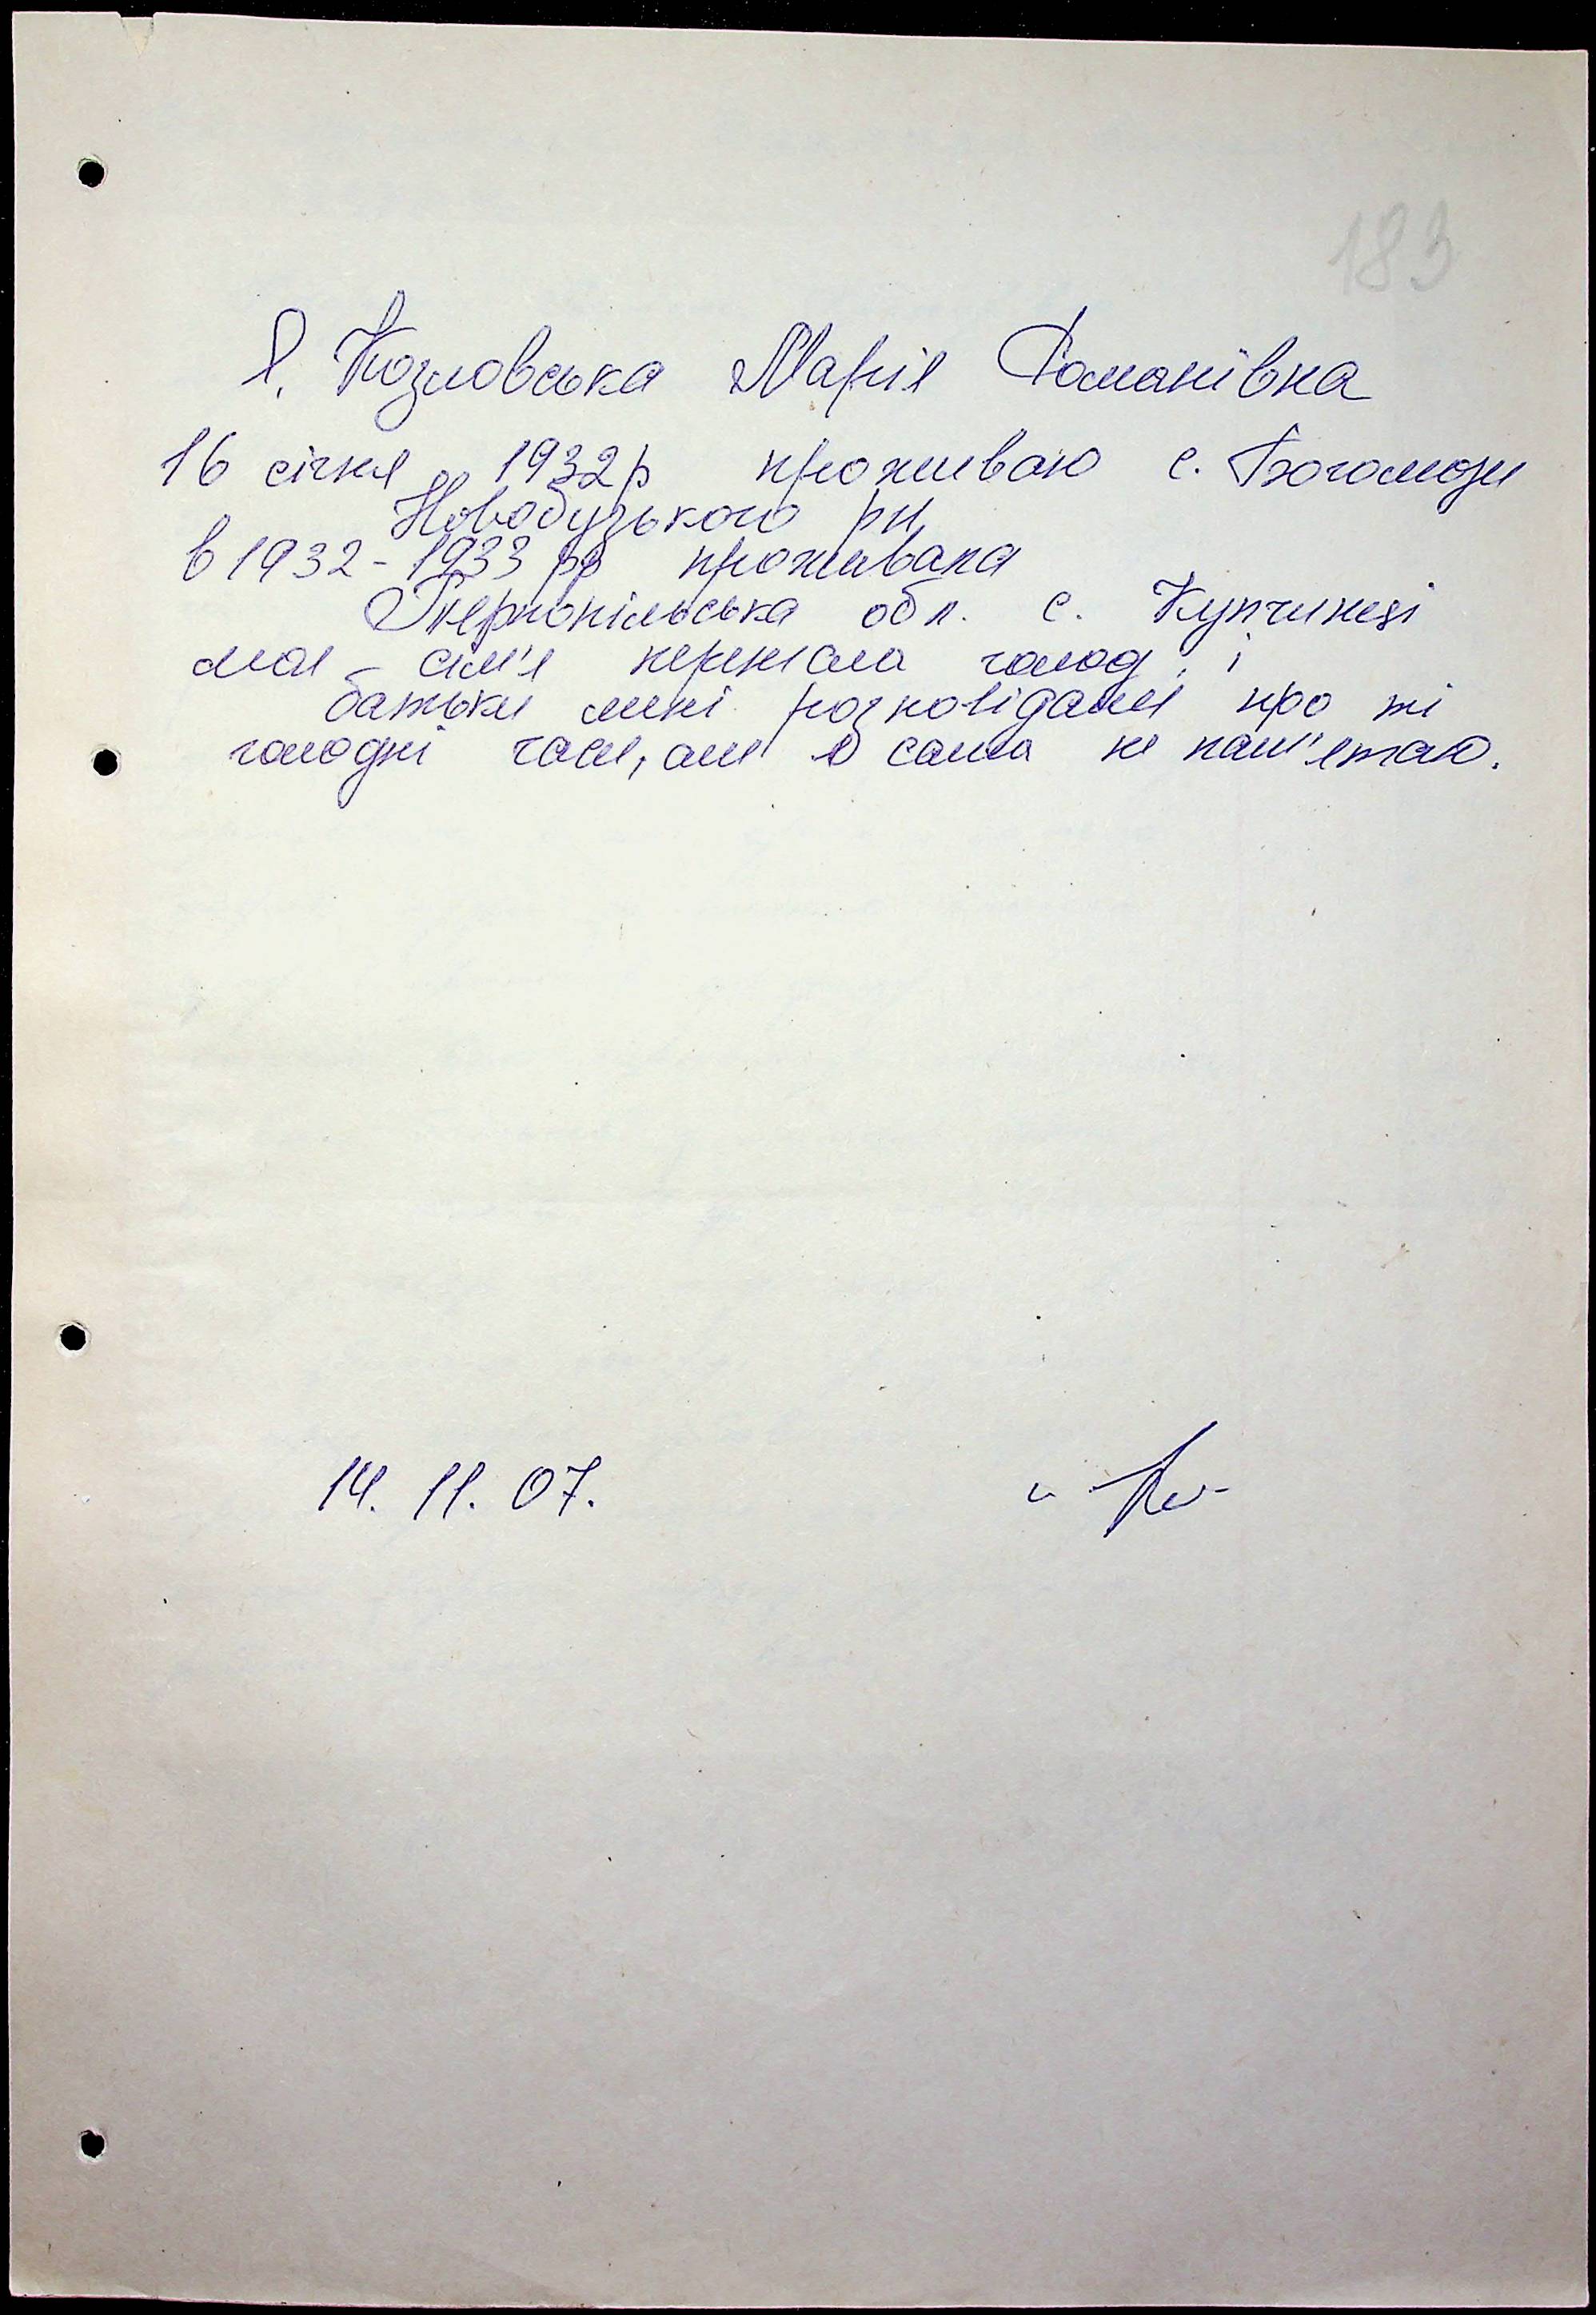 183
Я, Козловська Марія Романівна
16 січня 1932р проживаю с. Богомази
Новобузького рн,
в 1932-1933 рр проживала
Тернопільська обл. с. Купчинці
моя сім'я пережила голод, і
батьки мені розповідали про ті
голодні часи, але я сама не пам'ятаю.
14. 11. 07.